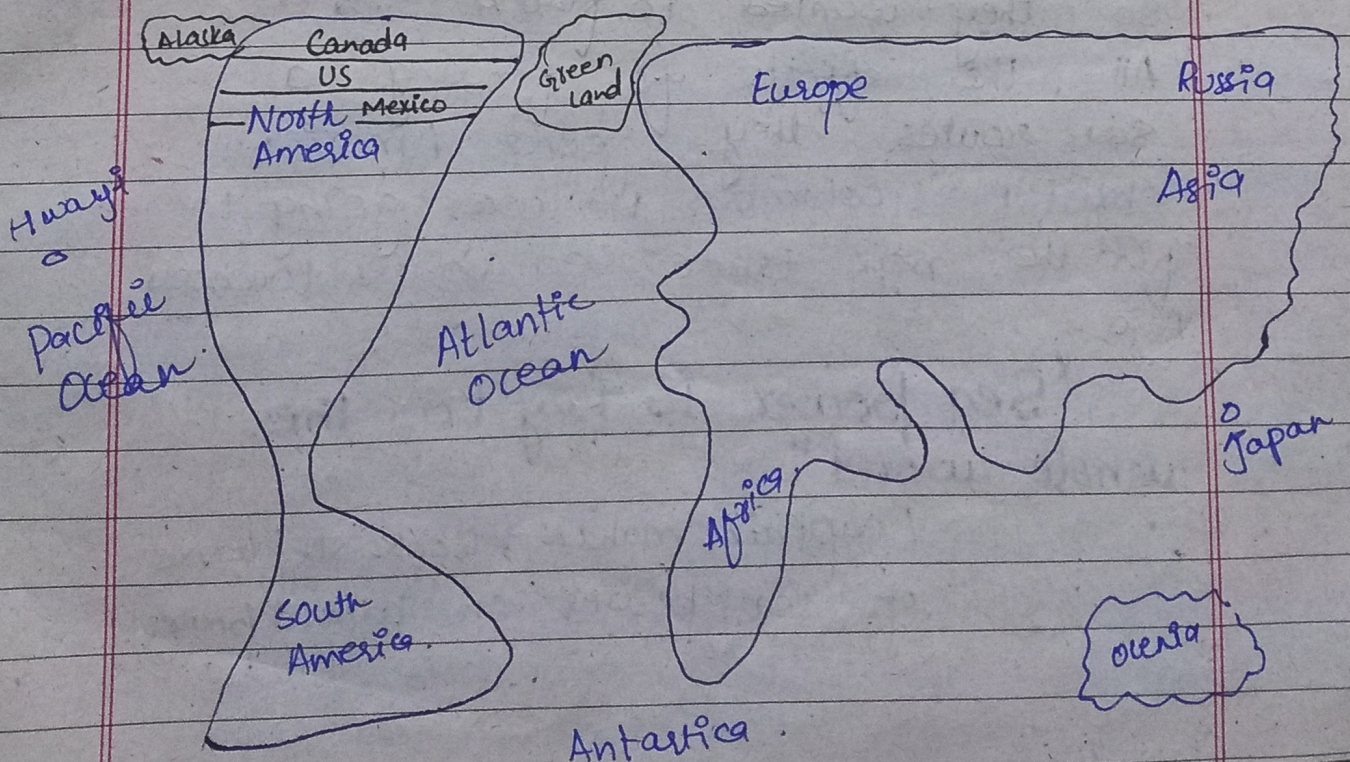 Alaska
Canada
US
North Mexico
America
Green
Land
Europe
Russia
Asia
Hwayi
Pacific
Ocean
Atlantic
Ocean
Africa
Japan
South
America.
Ocenia
Antartica.